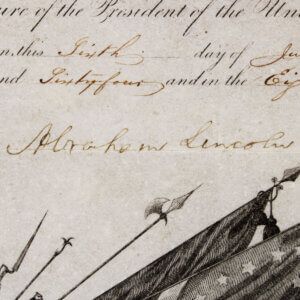 ure of the President of the Uni
n this Sixth day of Ju
nd Sixty four and in the Eig
Abraham Lincoln